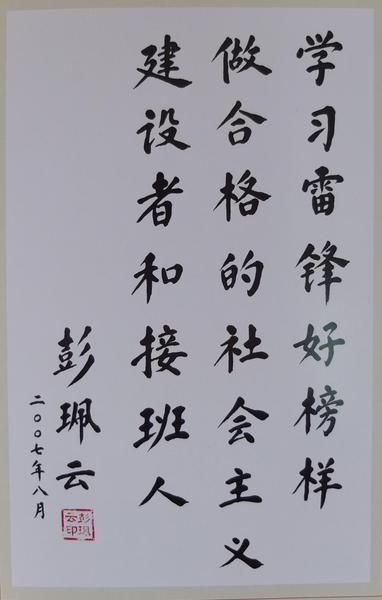 学习雷锋好榜样
做合格的社会主义
建设者和接班人
彭珮云
二〇〇七年八月
彭珮云印